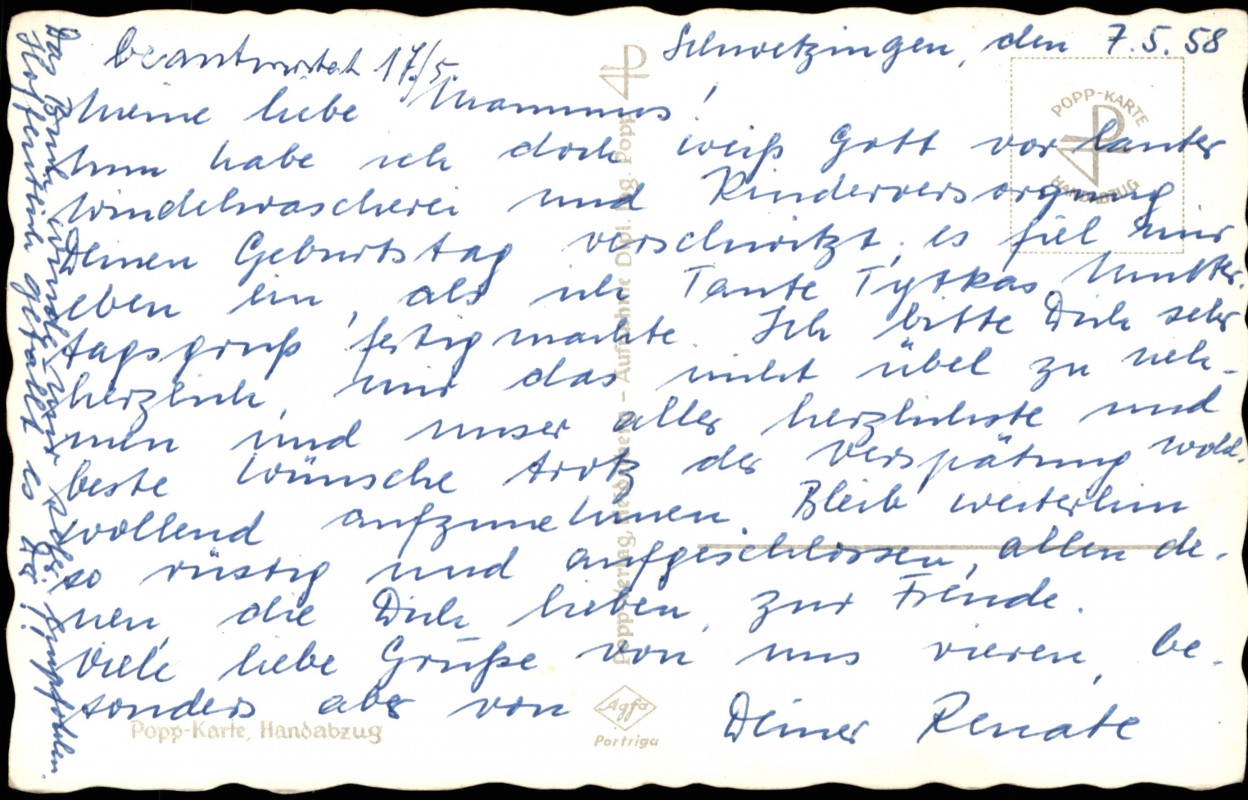 beantwortet 17/5.
Schwetzingen, den 7.5.58
Meine liebe Mammus!
Nun habe ich doch weiß Gott vor lauter
Windelwascherei und Kinderversorgung
Deinen Geburtstag verschwitzt; es fiel mir
eben ein, als ich Tante Tytkas Mutter-
tagsgruß fertig machte. Ich bitte Dich sehr
herzlich, mir das nicht übel zu neh-
men und unser aller herzlichste und
beste Wünsche trotz der Verspätung wohl-
wollend aufzunehmen. Bleib weiterhin
so rüstig und aufgeschlossen, allen de-
nen, die Dich lieben, zur Freude.
Viele liebe Grüße von uns vieren, be-
sonders aber von
Deiner Renate
Das Buch wurde mir sehr empfohlen.
Hoffentlich gefällt es Dir!
POPP-KARTE
HANDABZUG
Popp-Verlag, Heidelberg – Aufnahme Dipl. Ing. Popp
Popp-Karte, Handabzug
Agfa
Portriga